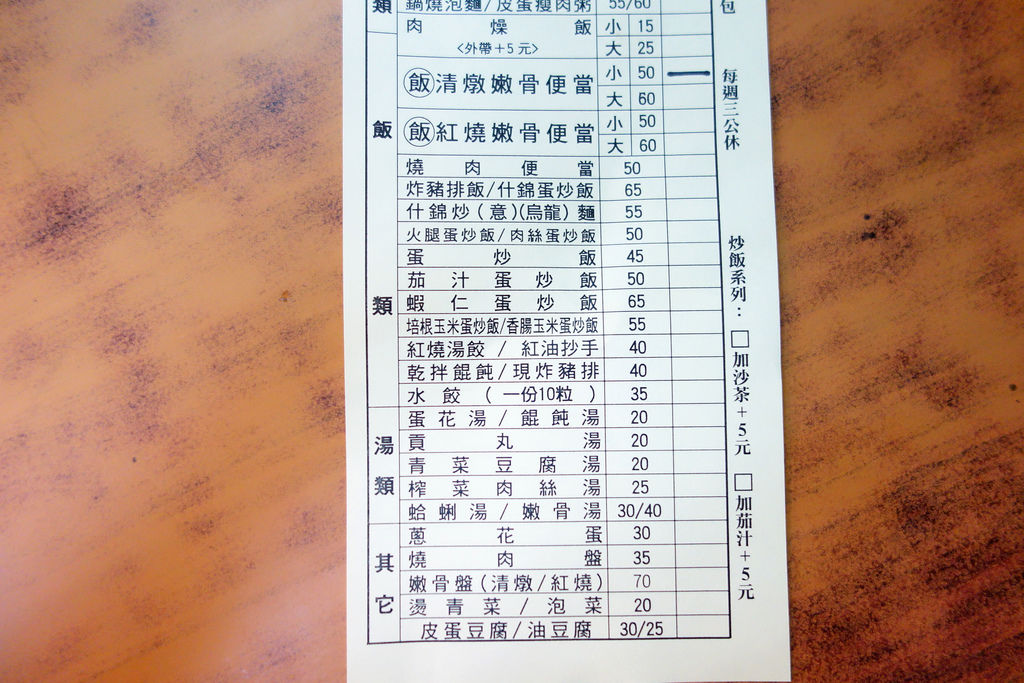 類 鍋燒泡麵/皮蛋瘦肉粥 55/60
肉燥飯 小 15
<外帶+5元> 大 25
飯清燉嫩骨便當 小 50
大 60
飯
飯紅燒嫩骨便當 小 50
大 60
燒肉便當 50
炸豬排飯/什錦蛋炒飯 65
什錦炒(意)(烏龍)麵 55
火腿蛋炒飯/肉絲蛋炒飯 50
蛋炒飯 45
茄汁蛋炒飯 50
類 蝦仁蛋炒飯 65
培根玉米蛋炒飯/香腸玉米蛋炒飯 55
紅燒湯餃/紅油抄手 40
乾拌餛飩/現炸豬排 40
水餃(一份10粒) 35
湯類
蛋花湯/餛飩湯 20
貢丸湯 20
青菜豆腐湯 20
榨菜肉絲湯 25
蛤蜊湯/嫩骨湯 30/40
其它
蔥花蛋 30
燒肉盤 35
嫩骨盤(清燉/紅燒) 70
燙青菜/泡菜 20
皮蛋豆腐/油豆腐 30/25
包
每週三公休
炒飯系列:□加沙茶+5元 □加茄汁+5元